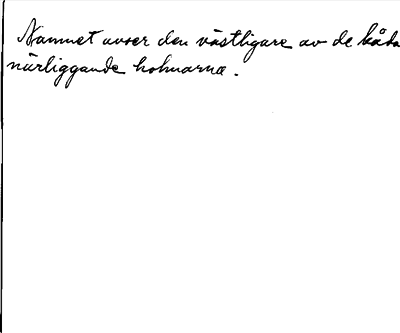 Namnet avser den västligare av de båda
närliggande holmarna.